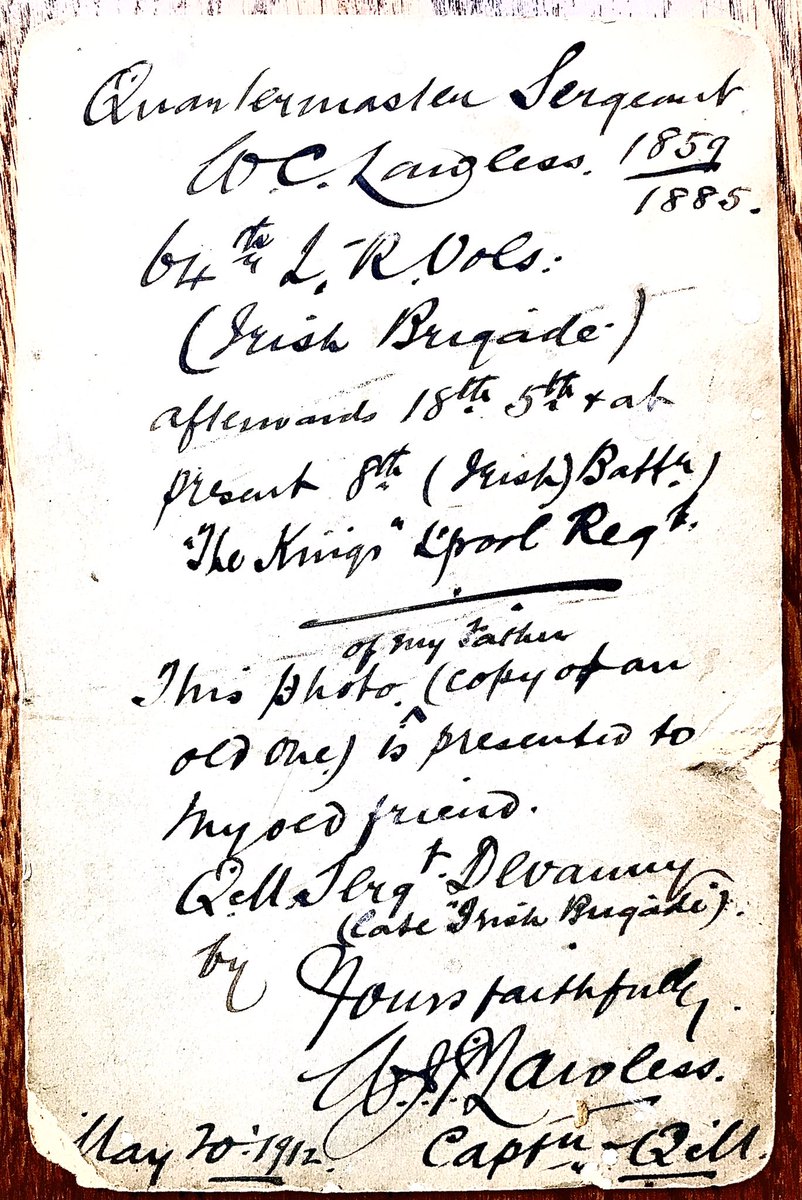 Quartermaster Sergeant
W C. Lawless. 1859
1885.
64th L. R. Vols.
(Irish Brigade.)
afterwards 18th 5th & at
present 8th (Irish) Battn)
"The Kings" L'pool Regt.
of my Father
This photo (copy of an
old one) is presented to
my old friend.
Q.M. Sergt. Devanny
(late "Irish Brigade").
by Yours faithfully,
Lawless.
May 20. 1912. Captn & Q.M.